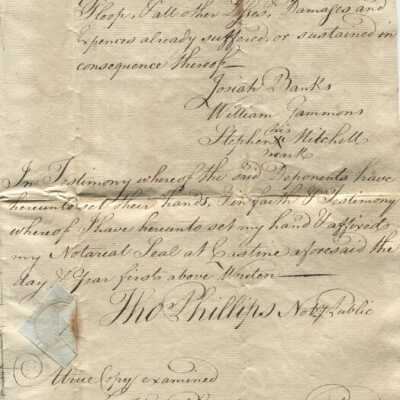 Sloop, & all other Losses, Damages and
Expences already suffered, or sustained in
consequence thereof—
Josiah Banks
William Gammons
his
Stephen X Mitchell
mark
In Testimony whereof the said Deponents have
hereunto set their hands, & in faith & Testimony
whereof I have hereunto set my hand & affixed
my Notarial Seal at Castine aforesaid the
day & Year first above Written—
Thos Phillips Noty Public
A true Copy examined